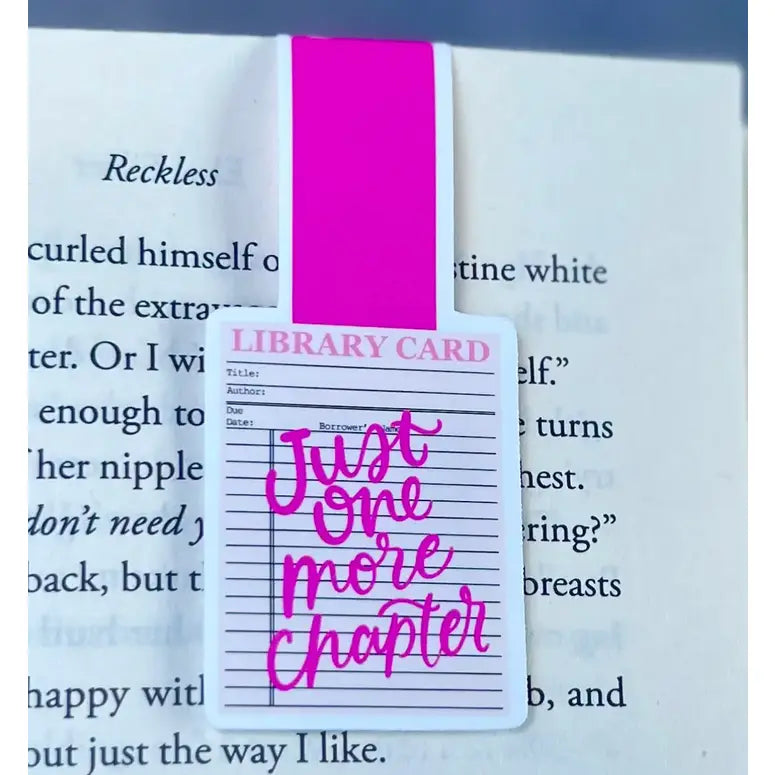 Reckless
curled himself
stine white
of the
ter. Or I
elf.”
enough to
turns
her nipple
hest.
don’t need
ring?”
back, but
breasts
happy with
b, and
out just the way I like.
LIBRARY CARD
Title:
Author:
Due
Date:
Borrower's
Just
one
more
chapter